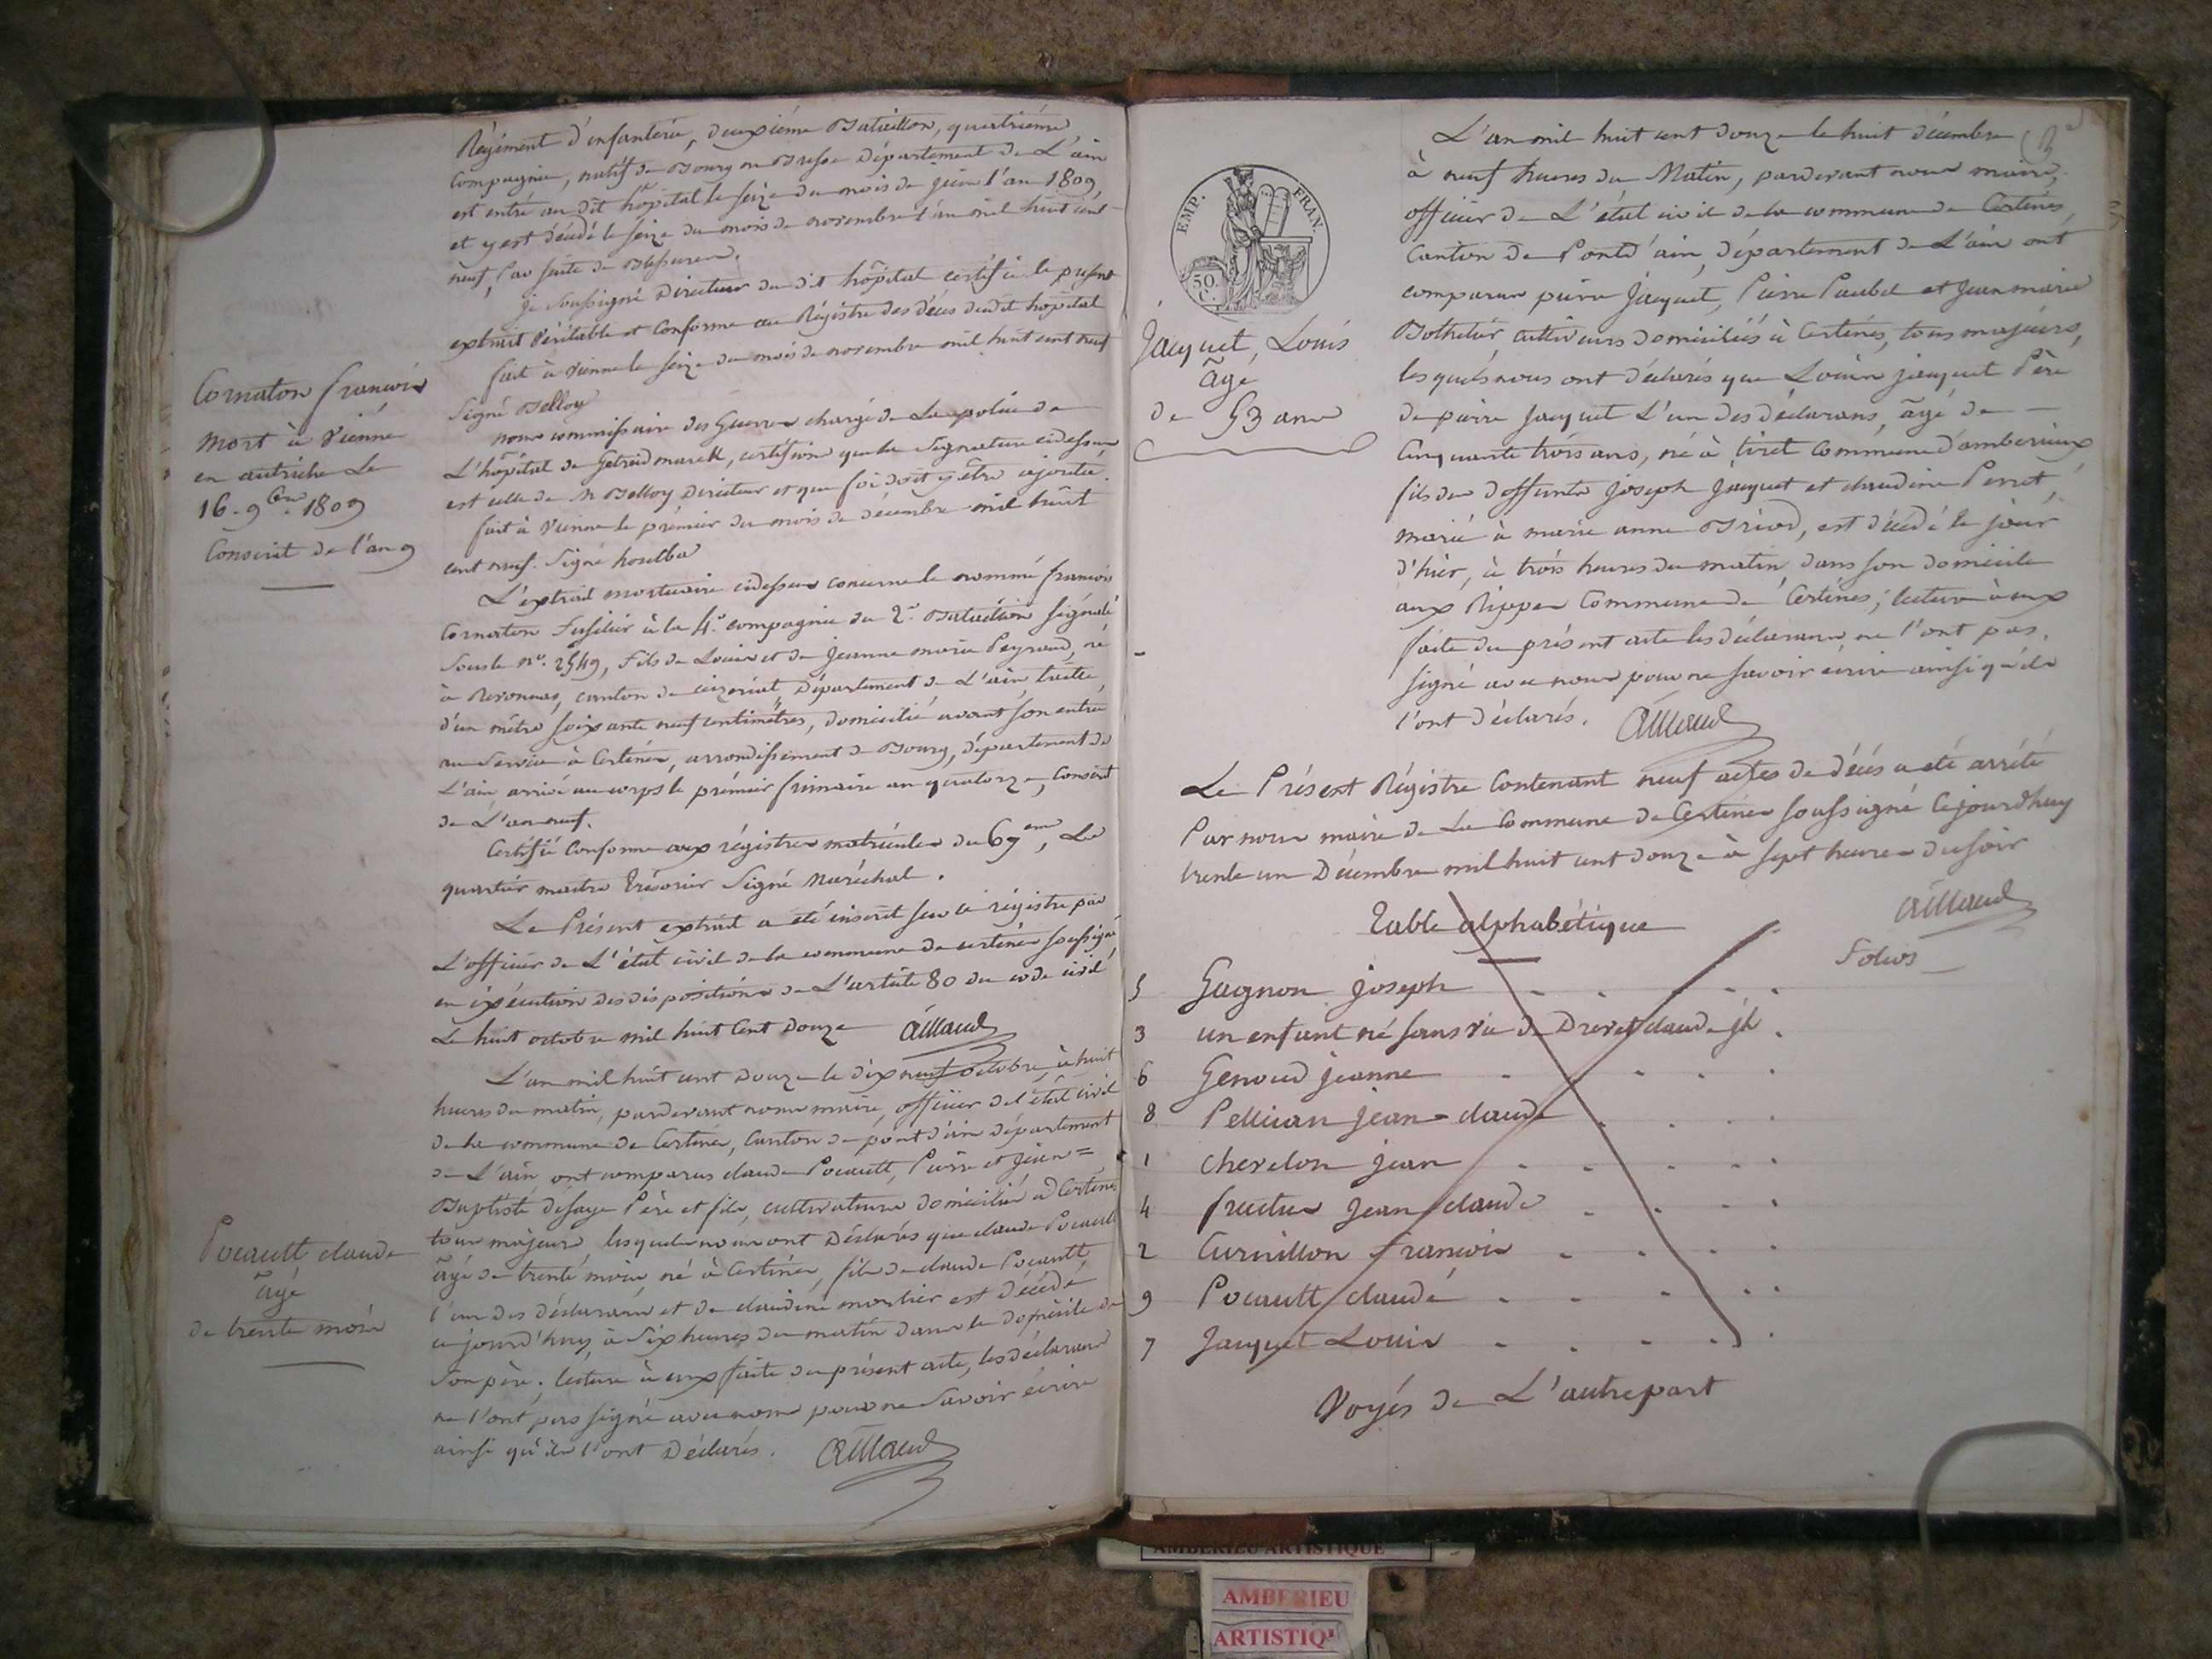 Régiment d'infanterie, deuxième Bataillon, quatrième
Compagnie, natif de Bourg en Bresse Département de L'ain
est entré au dit hôpital le seize du mois de juin l'an 1809,
et y est décédé le seize du mois de novembre l'an mil huit cent
neuf, Par suite de Blessures.
je soussigné Directeur du dit hôpital certifie le présent
extrait Véritable et Conforme au Régistre des décès dudit hôpital
fait à Vienne le seize du mois de novembre mil huit cent neuf
Signé Belloy
Cornaton françois
mort à Vienne
en autriche Le
16 - 9bre 1809
Conscrit de l'an 9
nous commissaire des Guerres chargé de La police de
L'hôpital de Getreidmarck, certifions que la Signature cidessus
est celle de M Belloy Directeur et que foi doit y être ajoutée.
fait à Vienne le prémier du mois de décembre mil huit
cent neuf. Signé
L'extrait mortuaire cidessus concerne le nommé françois
Cornaton Fusilier à la 4e compagnie du 2e Bataillon signalé
Sous le No. 2549, fils de Louis et de Jeanne marie Peyraud, né
à Neronnas, canton de ceizeriat Département de L'ain, taille
d'un mètre soixante neuf centimètres, domicilié avant son entrée
au Service à Certines, arrondissement de Bourg, département de
L'ain arrivé au corps le prémier frimaire an quatorze, conscrit
de L'an neuf.
Certifié Conforme aux régistres matricules du 67em, Le
quartier maitre trésorier Signé Maréchal.
Le Présent extrait a été inscrit sur le régistre par
L'officier de L'état civil de la commune de certines soussigné
en éxécution des dispositions de L'article 80 du code civil
Le huit octobre mil huit Cent Douze Aillaud
L'an mil huit cent Douze le dix neuf octobre, à huit
heures du matin, pardevant nous maire, officier de l'état civil
de la commune de Certines, Canton de pont d'ain département
de L'ain, ont comparus claude Pocault, Pierre et Jean=
Baptiste désaye Père et fils, cultivateurs domiciliés à Certines
tous majeurs, lesquels nous ont Déclarés que claude Pocault
âgé de trente mois né à Certines, fils de claude Pocault,
l'un des déclarans et de claudine mortier est décédé
ce jourd'huy, à Six heures du matin dans le domicile de
Son père. lecture à eux faite du présent acte, les déclarans
ne l'ont pas signé avec nous pour ne Savoir écrire
ainsi qu'ils l'ont Déclarés. Aillaud
Pocault, claude
âgé
de trente mois
EMP. FRAN.
50.
C.
Jacquet, Louis
âgé
de 53 ans
L'an mil huit cent douze le huit décembre
à neuf heures du Matin, pardevant nous maire,
officier de L'état civil de la commune de Certines,
Canton de Pontd'ain, département de L'ain ont
comparus pierre Jacquet, Pierre Paubel et Jean marie
Bothelier, cultivateurs domiciliés à Certines, tous majeurs,
lesquels nous ont déclarés que Louis jacquet Père
de pierre Jacquet L'un des déclarans, âgé de
Cinquante trois ans, né à tiret Commune d'amberieux
fils des deffunts Joseph Jacquet et claudine Perret,
marié à marie anne Briod, est décédé le jour
d'hier, à trois heures du matin, dans son domicile
aux Rippes Commune de Certines; lecture à eux
faite du présent acte les déclarans ne l'ont pas
signé avec nous pour ne savoir écrire ainsi qu'ils
l'ont déclarés. Aillaud
Le Présent Régistre Contenant neuf actes de décès a été arrêté
Par nous maire de La Commune de Certines soussigné Cejourdhuy
trente un Décembre mil huit cent douze à sept heures du soir
Aillaud
Table alphabétique
Folios
5 Gagnon joseph
3 un enfant né sans vie de Drevet claude jh
6 Genoud jeanne
8 Pellican jean-claude
1 cherelon jean
4 frection Jean claude
2 Curnillon françois
9 Pocault claude
7 Jacquet Louis
Voyés de L'autrepart
AMBERIEU ARTISTIQUE
AMBERIEU
ARTISTIQ